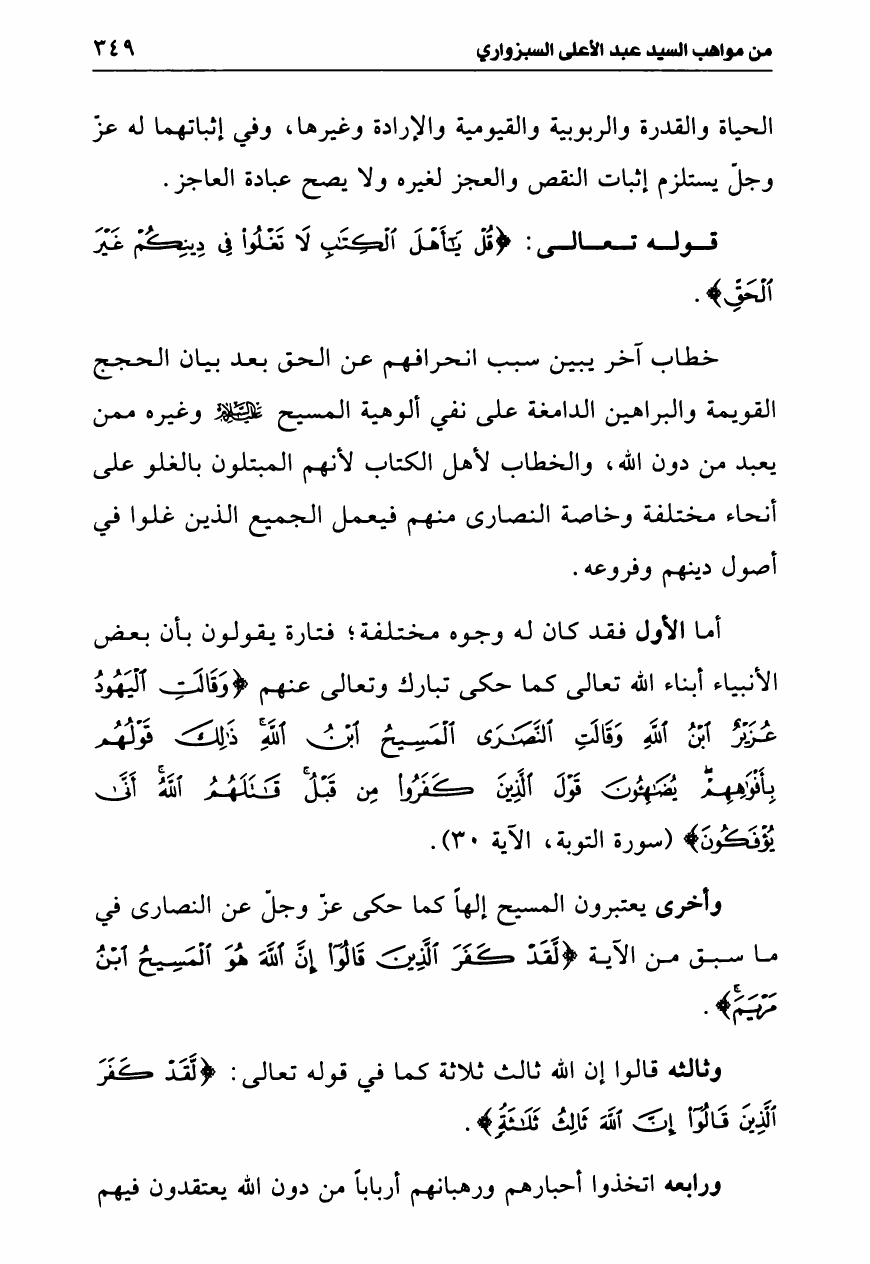 من مواهب السيد عبد الأعلى السبزواري ٣٤٩
الحياة والقدرة والربوبية والقيومية والإرادة وغيرها، وفي إثباتهما له عزّ
وجلّ يستلزم إثبات النقص والعجز لغيره ولا يصح عبادة العاجز.
قـولـه تـعـالـى: ﴿قُلْ يَـٰٓأَهْلَ ٱلْكِتَـٰبِ لَا تَغْلُوا۟ فِى دِينِكُمْ غَيْرَ
ٱلْحَقِّ﴾.
خطاب آخر يبين سبب انحرافهم عن الحق بعد بيان الحجج
القويمة والبراهين الدامغة على نفي ألوهية المسيح عليه السلام وغيره ممن
يعبد من دون الله، والخطاب لأهل الكتاب لأنهم المبتلون بالغلو على
أنحاء مختلفة وخاصة النصارى منهم فيعمل الجميع الذين غلوا في
أصول دينهم وفروعه.
أما الأول فقد كان له وجوه مختلفة؛ فتارة يقولون بأن بعض
الأنبياء أبناء الله تعالى كما حكى تبارك وتعالى عنهم ﴿وَقَالَتِ ٱلْيَهُودُ
عُزَيْرٌ ٱبْنُ ٱللَّهِ وَقَالَتِ ٱلنَّصَـٰرَى ٱلْمَسِيحُ ٱبْنُ ٱللَّهِ ۖ ذَٰلِكَ قَوْلُهُم
بِأَفْوَٰهِهِمْ ۖ يُضَـٰهِـُٔونَ قَوْلَ ٱلَّذِينَ كَفَرُوا۟ مِن قَبْلُ ۚ قَـٰتَلَهُمُ ٱللَّهُ ۚ أَنَّىٰ
يُؤْفَكُونَ﴾ (سورة التوبة، الآية ٣٠).
وأخرى يعتبرون المسيح إلهاً كما حكى عزّ وجلّ عن النصارى في
ما سبق من الآية ﴿لَّقَدْ كَفَرَ ٱلَّذِينَ قَالُوٓا۟ إِنَّ ٱللَّهَ هُوَ ٱلْمَسِيحُ ٱبْنُ
مَرْيَمَ ۚ﴾.
وثالثه قالوا إن الله ثالث ثلاثة كما في قوله تعالى: ﴿لَّقَدْ كَفَرَ
ٱلَّذِينَ قَالُوٓا۟ إِنَّ ٱللَّهَ ثَالِثُ ثَلَـٰثَةٍ﴾.
ورابعه اتخذوا أحبارهم ورهبانهم أرباباً من دون الله يعتقدون فيهم